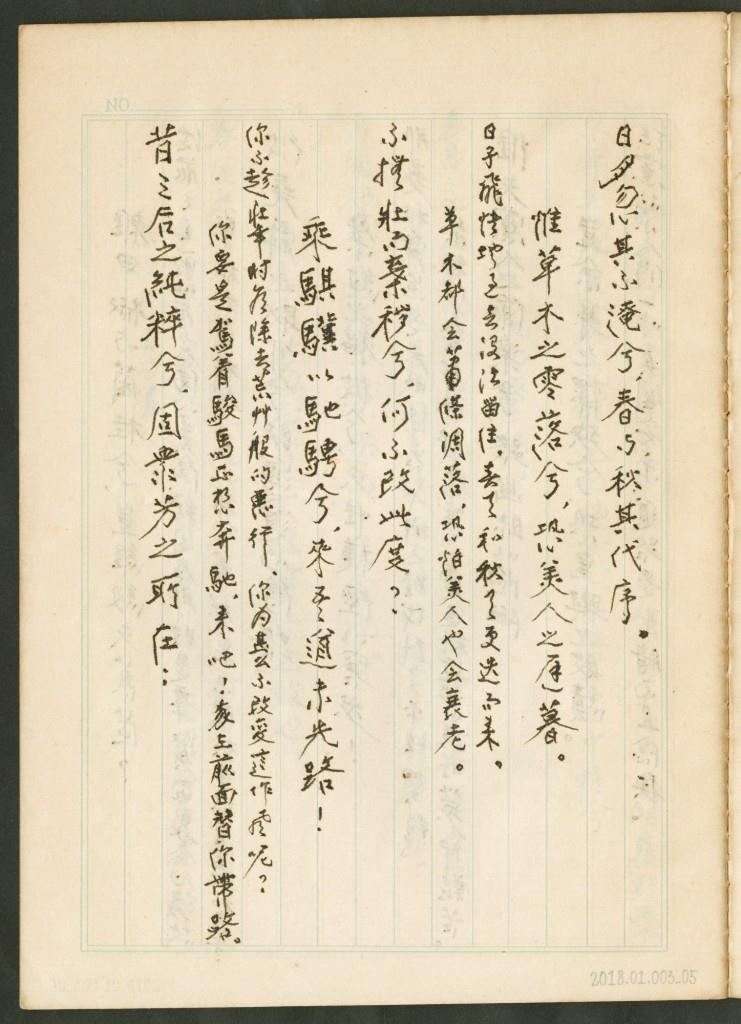 日夕忽其不淹兮,春与秋其代序。
惟草木之零落兮,恐美人之遲暮。
日子飛快地過去沒法留住,春天和秋天更迭而來。
草木都会蕭條凋落,恐怕美人也会衰老。
不撫壯而棄穢兮,何不改此度?
乘騏驥以馳騁兮,來吾道夫先路!
你不趁壯年时房除去荒艸般的惡行,你为甚么不改變這作風呢?
你要是駕着駿馬正想奔馳,来吧!我在前面替你帶路。
昔三后之純粹兮,固眾芳之所在:
NO
2018.01.003_05